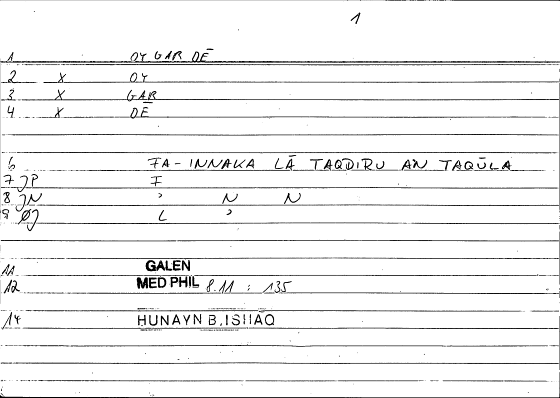 1
1 OY GAR DĒ
2 X OY
3 X GAR
4 X DĒ
6 FA-INNAKA LĀ TAQDIRU AN TAQŪLA
7 JP F
8 JN ' N N
9 ØJ L '
11 GALEN
12 MED PHIL 8.11 : 135
14 HUNAYN B. ISHĀQ